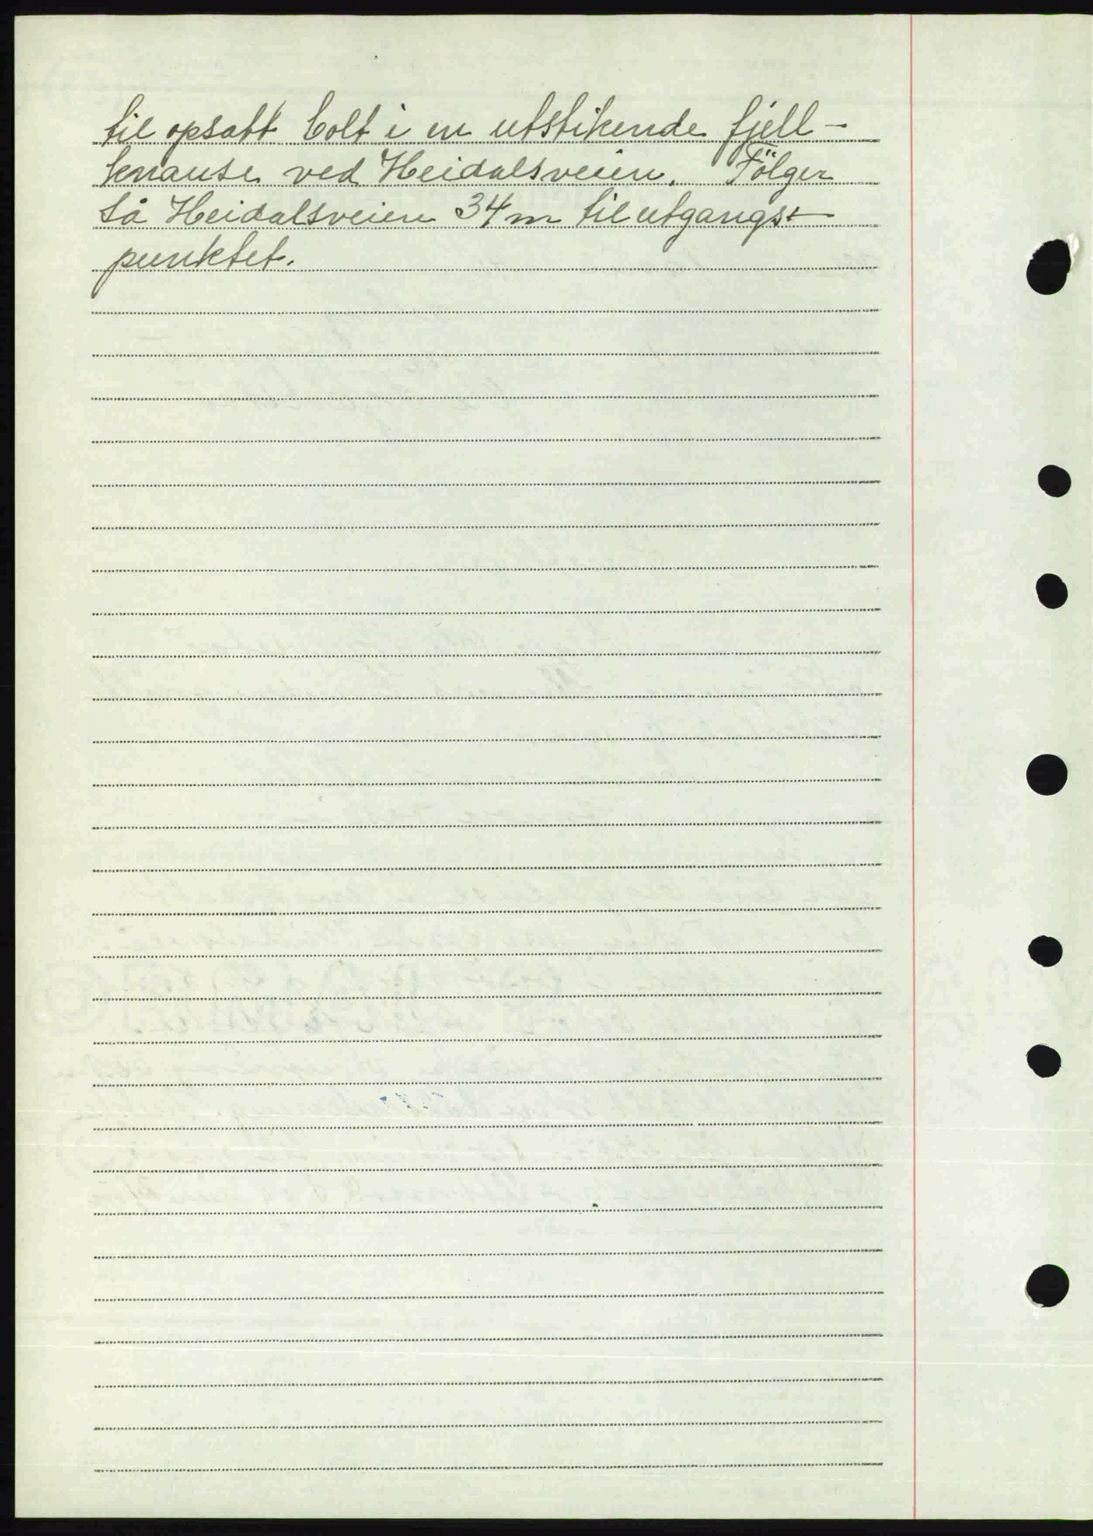 til opsatt bolt i en utstikende fjell-
knause ved Heidalsveien. Følger
så Heidalsveien 34 m til utgangs-
punktet.